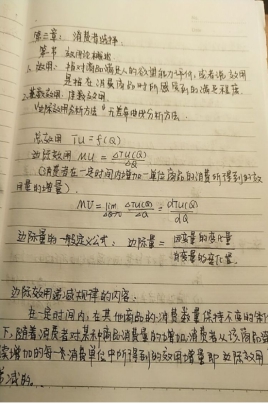 第二章：消费者选择
第一节 效用论概述
1、效用：指对商品满足人的欲望能力评价，或者说效用
是指在消费商品时所感受到的满足程度
2、基数效用 序数效用
边际效用分析方法 无差异曲线分析方法
总效用 TU=f(Q)
边际效用 MU=ΔTU(Q)/ΔQ
(消费者在一定时间内增加一单位商品的消费所得到的效
用量的增量)
MU=lim ΔTU(Q)/ΔQ=dTU(Q)/dQ
边际量的一般定义公式：边际量=因变量的变化量/自变量的变化量
边际效用递减规律的内容：
在一定时间内，在其他商品的消费数量保持不变的条件
下，随着消费者对某种商品消费量的增加，消费者从该商品连
续增加的每一消费单位中所得到的效用增量即边际效用
递减的。